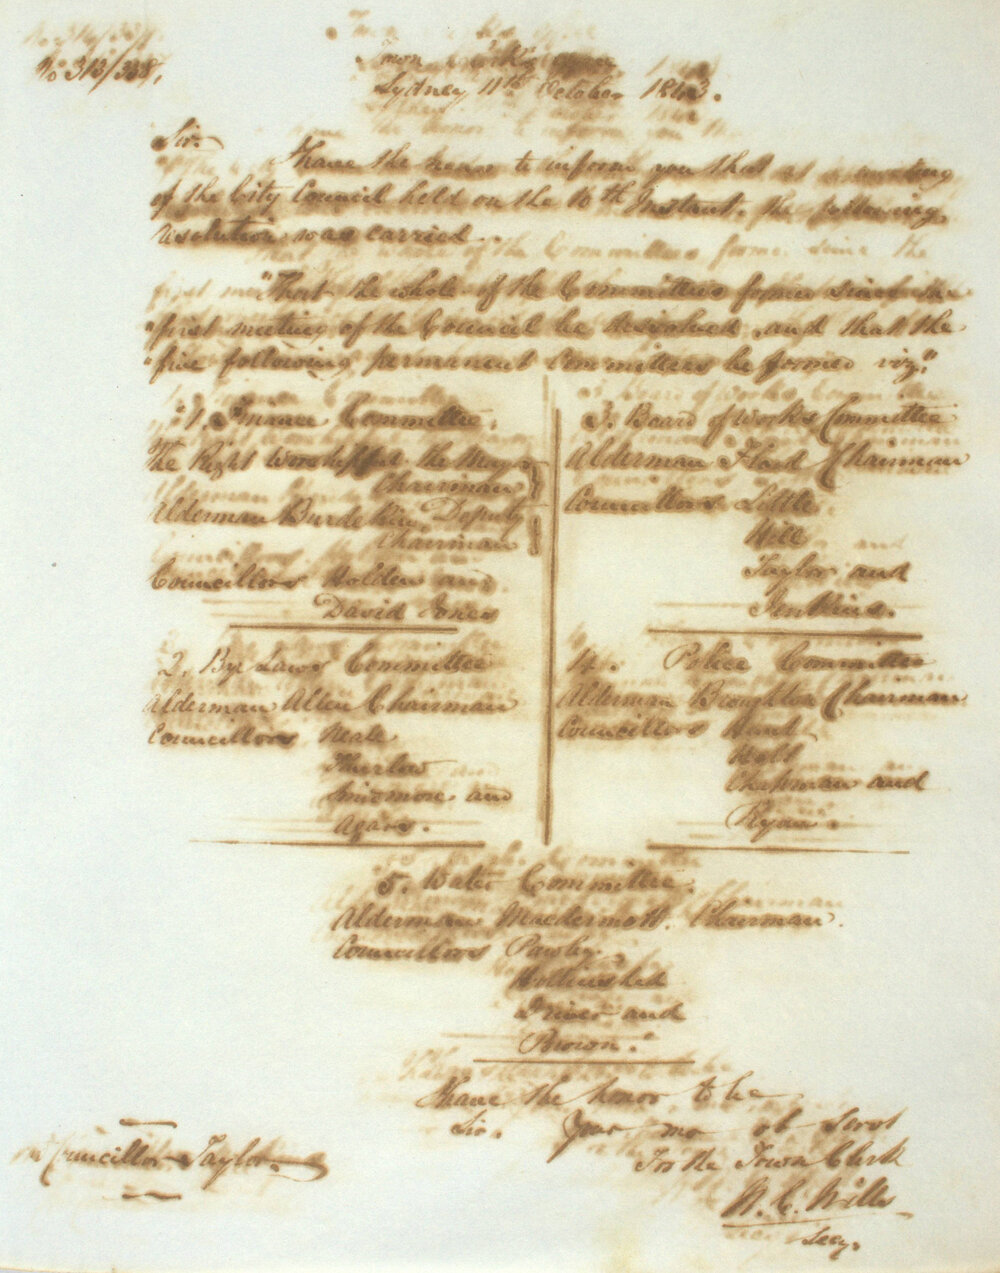 No 313/338.
Town Clerk's Office
Sydney 11th October 1843.
Sir.
I have the honor to inform you that at a meeting
of the City Council held on the 10th Instant, the following
resolution was carried.
"That the whole of the Committees formed since the
"first meeting of the Council be dissolved, and that the
"five following permanent Committees be formed viz,"
"1. Finance Committee.
The Right Worshipful the Mayor
Chairman
Alderman Burdekin Deputy
Chairman
Councillors Holden and
David Jones
2. Bye Laws Committee
Alderman Allen Chairman
Councillors Neale
Thurlow
and
Agars.
3. Board of Works Committee
Alderman Flood Chairman
Councillors Little
Hill
Taylor and
Jenkins.
4. Police Committee
Alderman Broughton Chairman
Councillors Hunt
Holt
Chapman and
Ryan.
5. Water Committee.
Alderman Macdermott. Chairman.
Councillors Pawley
Hollinshed
Driver and
Brown."
I have the honor to be
Sir. Your mo ob Servt
For the Town Clerk
W. C. Wills
Secy.
Councillor Taylor.